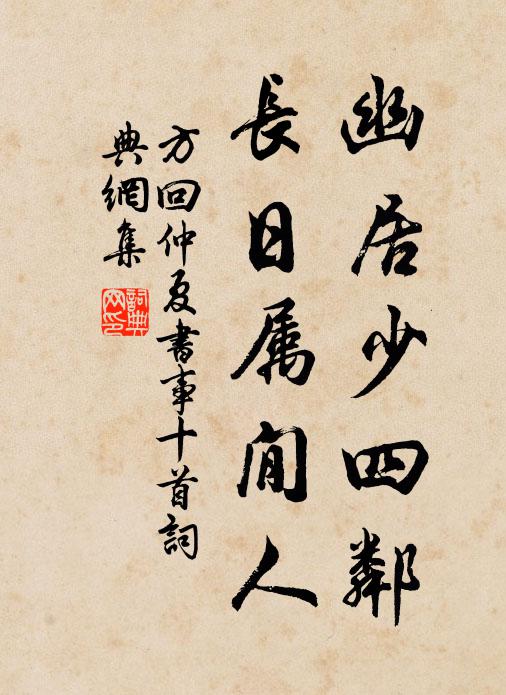 幽居少四鄰
長日属閒人
方回仲夏書事十首詞
典網集
詞典
网印